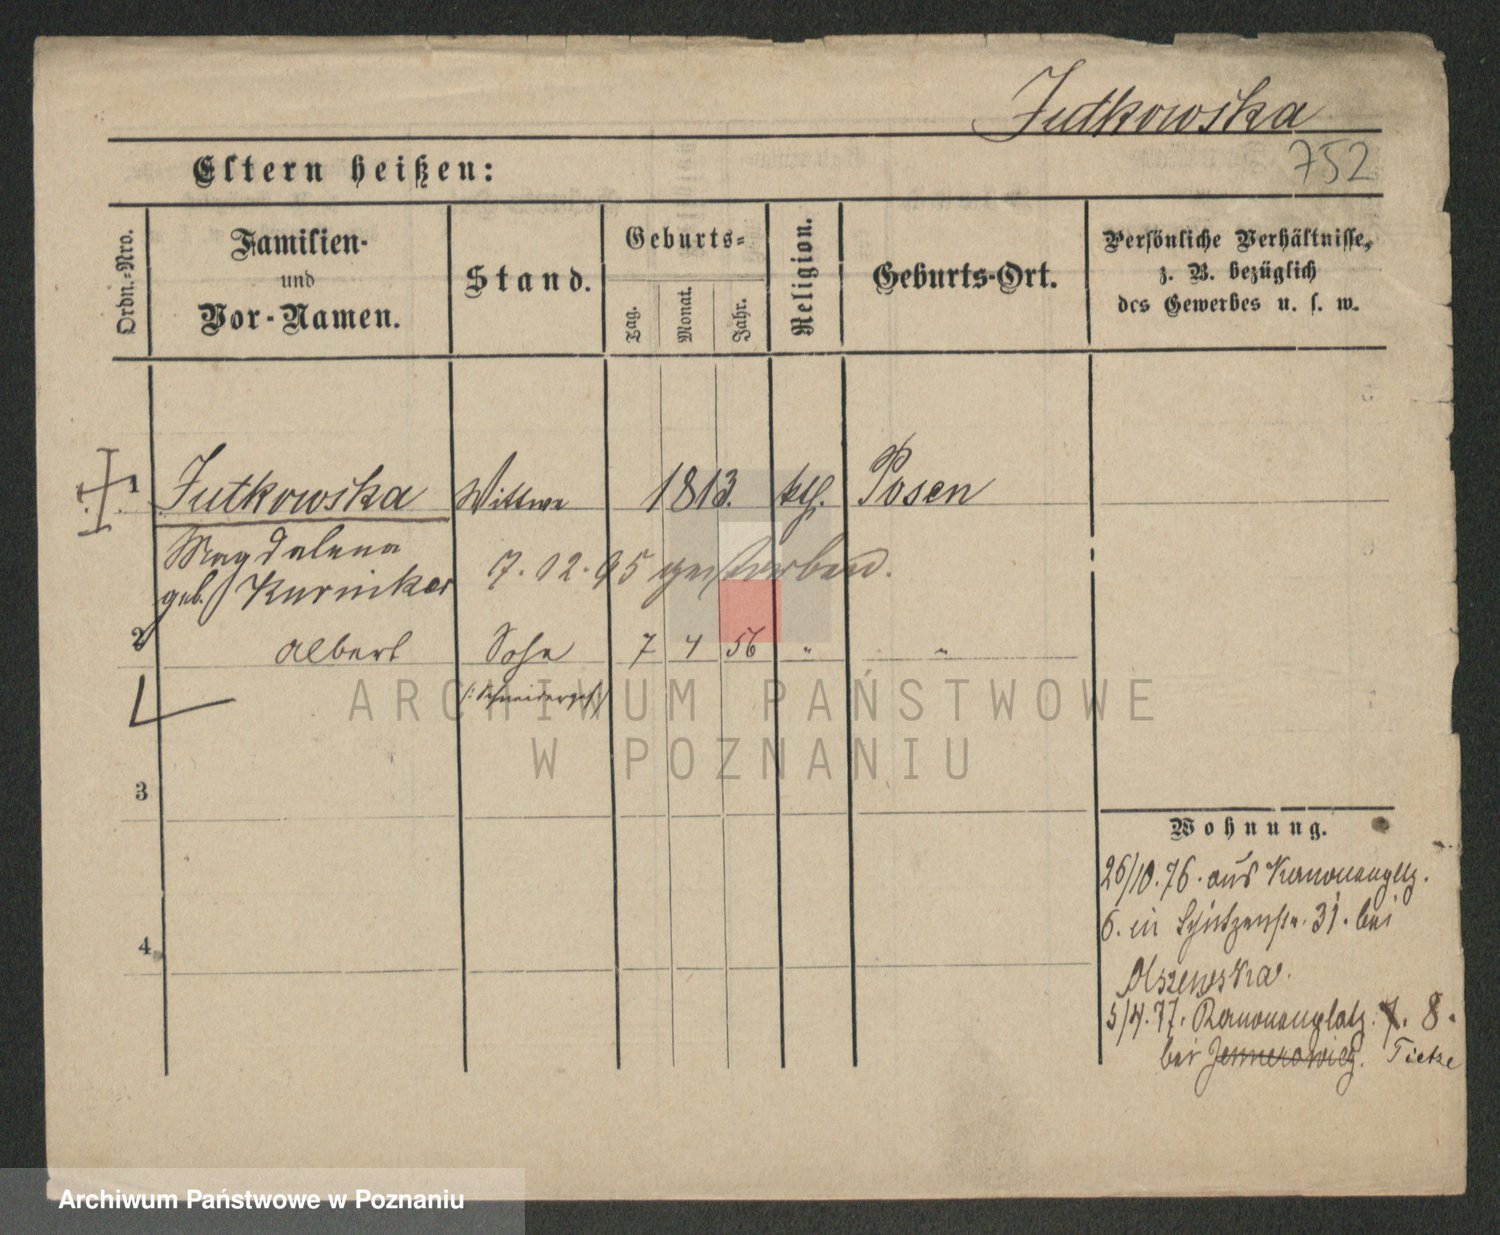 Jutkowska
752
Eltern heißen:
Ordn.-Nro.
Familien-
und
Vor-Namen.
Stand.
Geburts-
Tag.
Monat.
Jahr.
Religion.
Geburts-Ort.
Persönliche Verhältnisse,
z. B. bezüglich
des Gewerbes u. s. w.
1 Jutkowska Wittwe 1813. ktl. Posen
Magdalena
geb.
7.12.95 gestorben.
2 Albert Sohn 7 4 56 " "
(: Schneiderges :)
3
4
Wohnung.
26/10.76. aus
6. in Schützenstr. 31. bei
Olszewska.
5/4.77. 8.
bei Tietze
ARCHIWUM PAŃSTWOWE
W POZNANIU
Archiwum Państwowe w Poznaniu